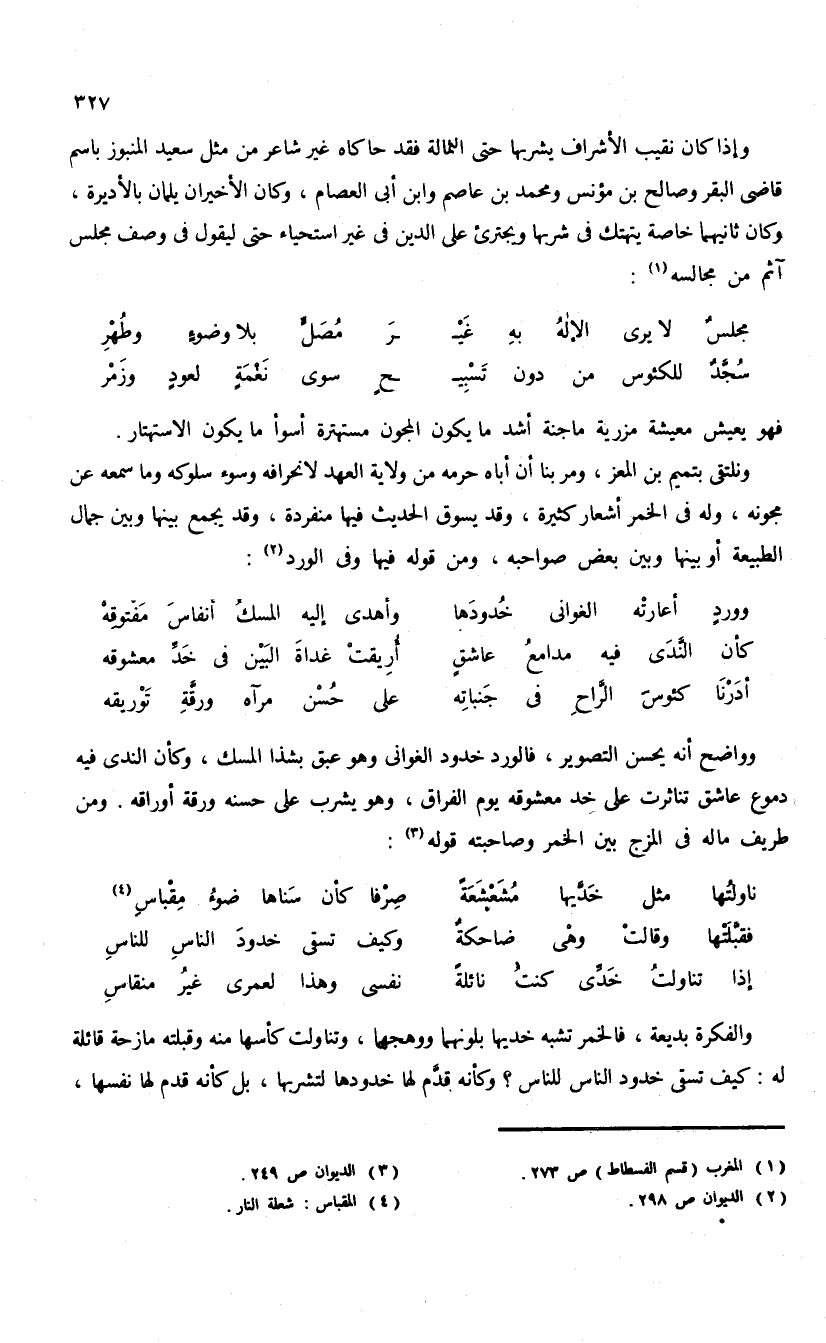 ٣٢٧
وإذا كان نقيب الأشراف يشربها حتى الثمالة فقد حاكاه غير شاعر من مثل سعيد المنبوز باسم
قاضى البقر وصالح بن مؤنس ومحمد بن عاصم وابن أبى العصام ، وكان الأخيران يلمان بالأديرة ،
وكان ثانيهما خاصة يتهتك فى شربها ويجترئ على الدين فى غير استحياء حتى ليقول فى وصف مجلس
آثم من مجالسه(١) :
مجلسٌ لا يرى الإلهُ بهِ غَيْـ ـرَ مُصَلٍّ بلا وضوءٍ وطُهْرِ
سُجَّدٌ للكئوس من دون تَسْبِيـ ـحٍ سوى نَغْمَةٍ لعودٍ وزَمْر
فهو يعيش معيشة مزرية ماجنة أشد ما يكون المجون مستهترة أسوأ ما يكون الاستهتار .
ونلتقى بتميم بن المعز ، ومر بنا أن أباه حرمه من ولاية العهد لانحرافه وسوء سلوكه وما سمعه عن
مجونه ، وله فى الخمر أشعار كثيرة ، وقد يسوق الحديث فيها منفردة ، وقد يجمع بينها وبين جمال
الطبيعة أو بينها وبين بعض صواحبه ، ومن قوله فيها وفى الورد(٢) :
ووردٍ أعارتْه الغوانى خُدودَها وأهدى إليه المسكُ أنفاسَ مَفْتوقِهْ
كأن النَّدَى فيه مدامعُ عاشقٍ أُرِيقتْ غداةَ البَيْن فى خَدِّ معشوقه
أدَرْنَا كئوسَ الرَّاحِ فى جَنباتِه على حُسْن مرآه ورقَّةِ تَوْريقه
وواضح أنه يحسن التصوير ، فالورد خدود الغوانى وهو عبق بشذا المسك ، وكأن الندى فيه
دموع عاشق تناثرت على خد معشوقه يوم الفراق ، وهو يشرب على حسنه ورقة أوراقه . ومن
طريف ماله فى المزج بين الخمر وصاحبته قوله(٣) :
ناولتُها مثل خَدَّيها مُشَعْشَعَةً صِرْفا كأن سَناها ضوءُ مِقْباسِ(٤)
فقبَّلَتْها وقالتْ وهْى ضاحكةٌ وكيف تسقى خدودَ الناسِ للناسِ
إذا تناولتُ خَدِّى كنتُ نائلةً نفسى وهذا لعمرى غيرُ منقاسِ
والفكرة بديعة ، فالخمر تشبه خديها بلونهما ووهجها ، وتناولت كأسها منه وقبلته مازحة قائلة
له : كيف تسقى خدود الناس للناس ؟ وكأنه قدَّم لها خدودها لتشربها ، بل كأنه قدم لها نفسها ،
(١) المغرب (قسم الفسطاط) ص ٢٧٣ .
(٢) الديوان ص ٢٩٨ .
(٣) الديوان ص ٢٤٩ .
(٤) المقباس : شعلة النار .